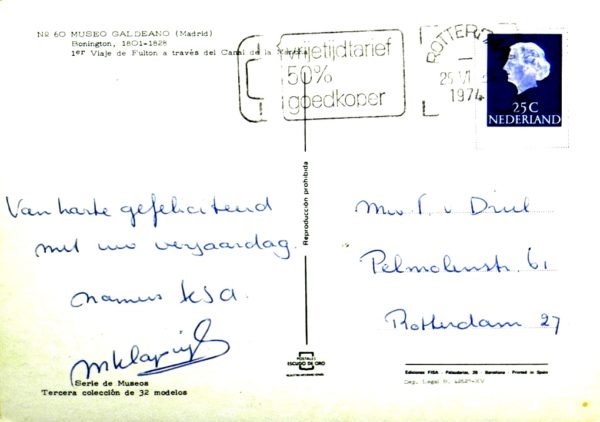 Nº 60 MUSEO GALDEANO (Madrid)
Bonington, 1801-1828
1er Viaje de Fulton a través del Canal de la Mancha
vrijetijdtarief
50%
goedkoper
ROTTERDAM
25 VI
1974
25 C
NEDERLAND
Van harte gefeliciteerd
met uw verjaardag.
namens KSA.
Reproducción prohibida
Mw T. v Driel
Pelmolenstr. 61
Rotterdam 27
POSTALES
ESCUDO DE ORO
Serie de Museos
Tercera colección de 32 modelos
Ediciones FISA - Palaudarias, 26 - Barcelona - Printed in Spain
Dep. Legal B.